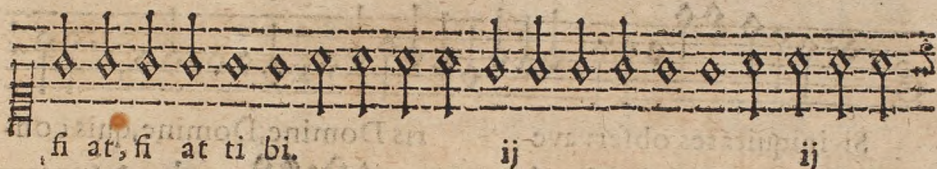 fi at, fi at ti bi. ij ij